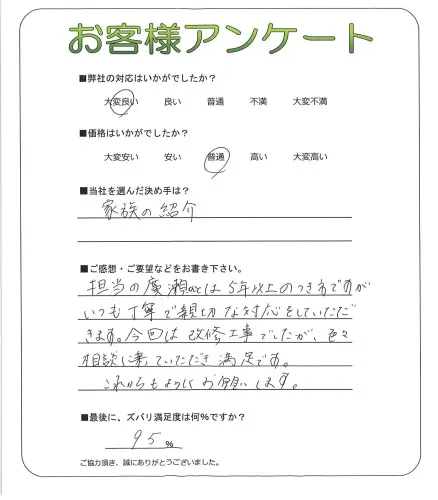 お客様アンケート
■弊社の対応はいかがでしたか？
大変良い 良い 普通 不満 大変不満
■価格はいかがでしたか？
大変安い 安い 普通 高い 大変高い
■当社を選んだ決め手は？
家族の紹介
■ご感想・ご要望などをお書き下さい。
担当の廣瀬さんとは5年以上のつき合いですが
いつも丁寧で親切な対応をしていただ
きます。今回は改修工事でしたが、色々
相談に乗っていただき満足です。
これからもよろしくお願いします。
■最後に、ズバリ満足度は何％ですか？
95％
ご協力頂き、誠にありがとうございました。